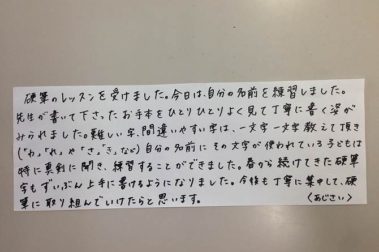 硬筆のレッスンを受けました。今日は、自分の名前を練習しました。
先生が書いて下さったお手本をひとりひとりよく見て丁寧に書く姿が
みられました。難しい字、間違いやすい字は、一文字一文字教えて頂き
("わ","れ","や","さ","き"など)自分の名前にその文字が使われている子どもは
特に真剣に聞き、練習することができました。春から続けてきた硬筆
字もずいぶん上手に書けるようになりました。今後も丁寧に集中して、硬
筆に取り組んでいけたらと思います。
(あじさい)